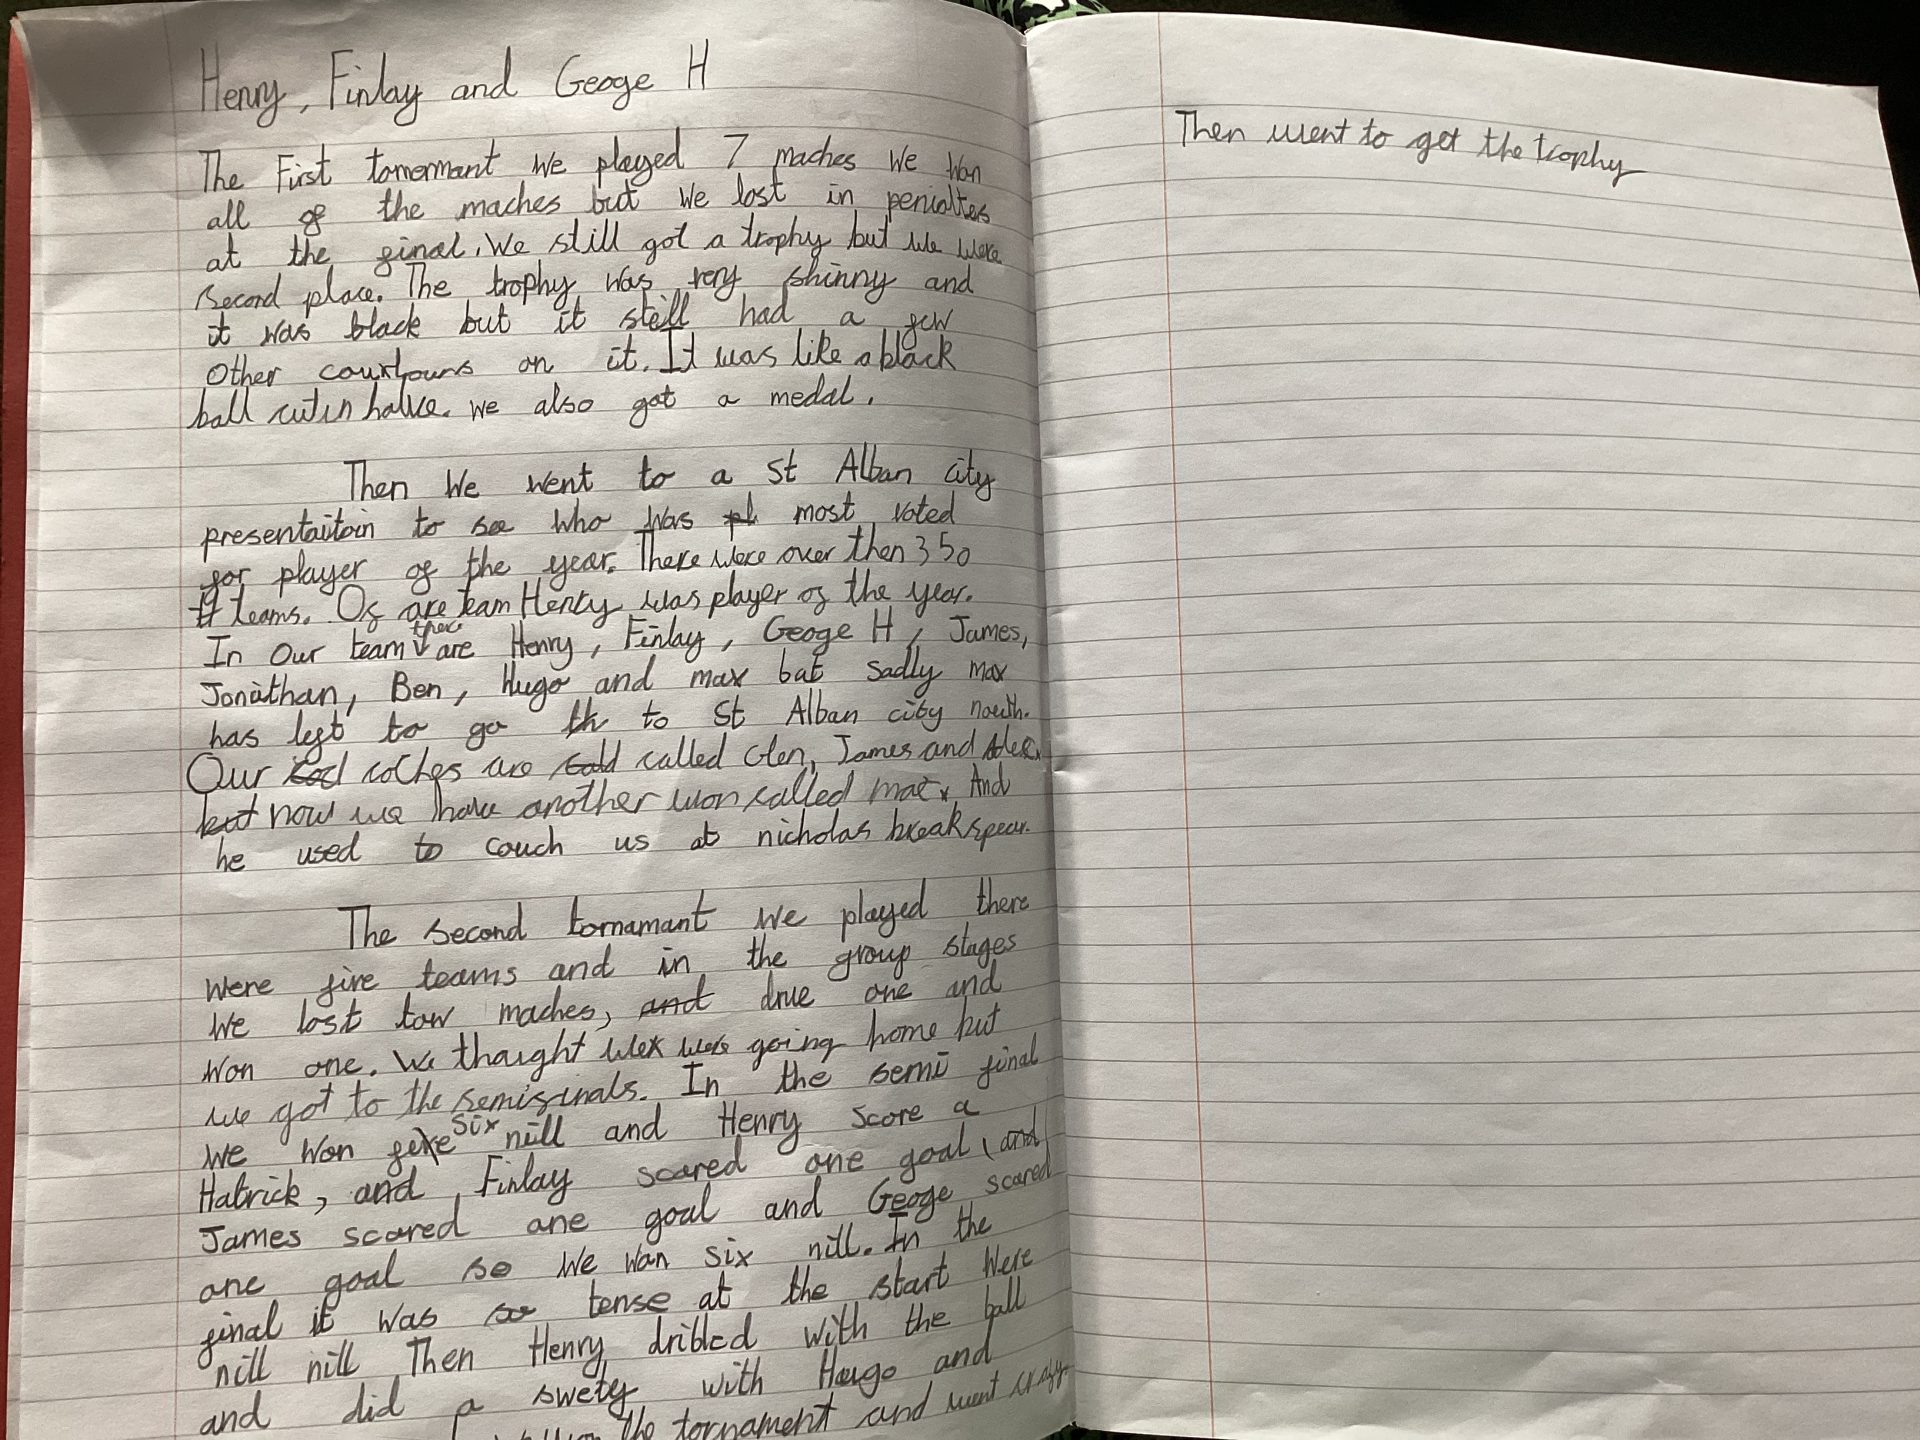 Henry, Finlay and Geoge H
The First tornormant we played 7 maches we won
all of the maches but we lost in penialtes
at the final. We still got a trophy but we were
second place. The trophy was very shinny and
it was black but it still had a few
other courlours on it. It was like a black
ball cut in halve. we also got a medal.
Then We went to a St Alban city
presentaitoin to see who was pl most voted
for player of the year. There were over then 350
tf teams. Of are team Henry was player of the year.
In our team there are Henry, Finlay, Geoge H, James,
Jonathan, Ben, Hugo and max bat sadly max
has left to go th to St Alban city north.
Our coches are called Glen, James and Alex
but now we have another won called mat. And
he used to couch us at nicholas breakspear.
The second tornamant we played there
were five teams and in the group stages
we lost tow maches, and drue one and
won one. We thaught we were going home but
we got to the semifinals. In the semi final
we won five six nill and Henry score a
Hatrick, and Finlay scared one goal, and
James scored one goal and Geoge scared
one goal so we wan six nill. In the
final it was so tense at the start were
nill nill Then Henry dribled with the ball
and did a swety with Hugo and
the tornament and went crazy.
Then went to get the trophy